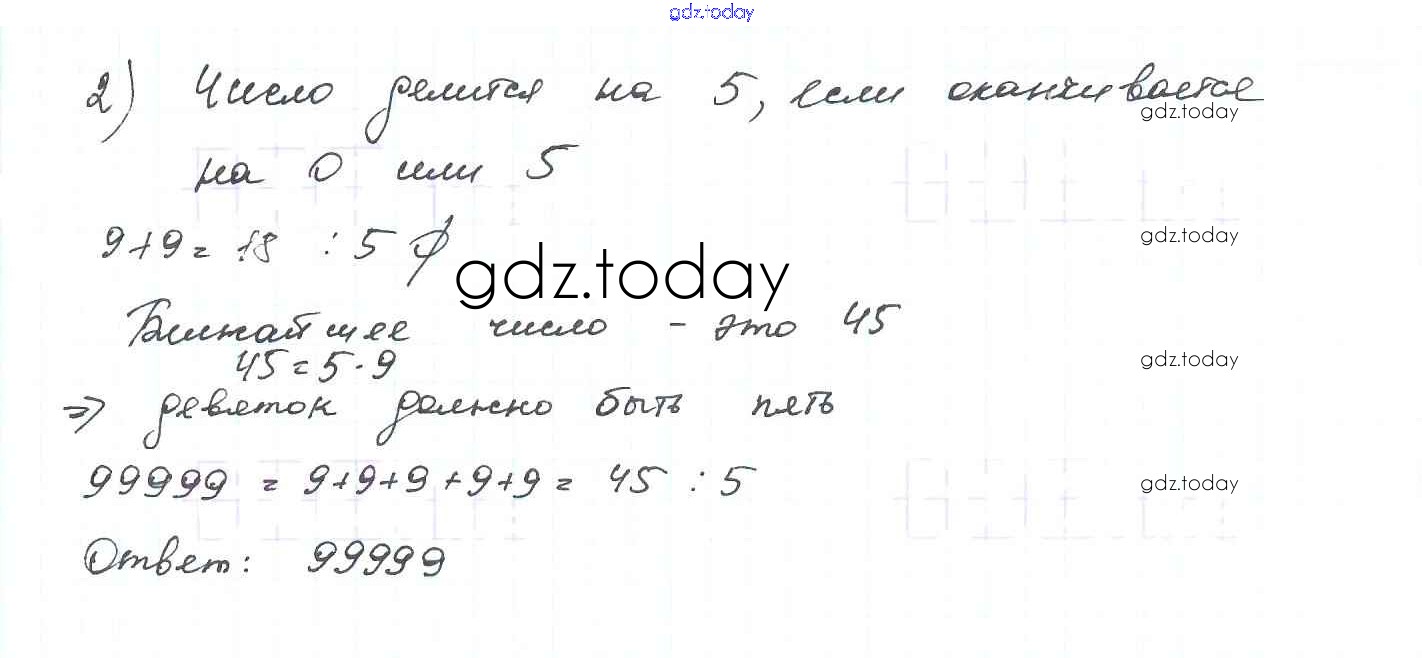 gdz.today
2) Число делится на 5, если оканчивается
gdz.today
на 0 или 5
9+9= 18 : 5 ∅
gdz.today
gdz.today
Ближайшее число - это 45
45=5·9
gdz.today
=> девяток должно быть пять
99999 = 9+9+9+9+9= 45 : 5
gdz.today
Ответ: 99999